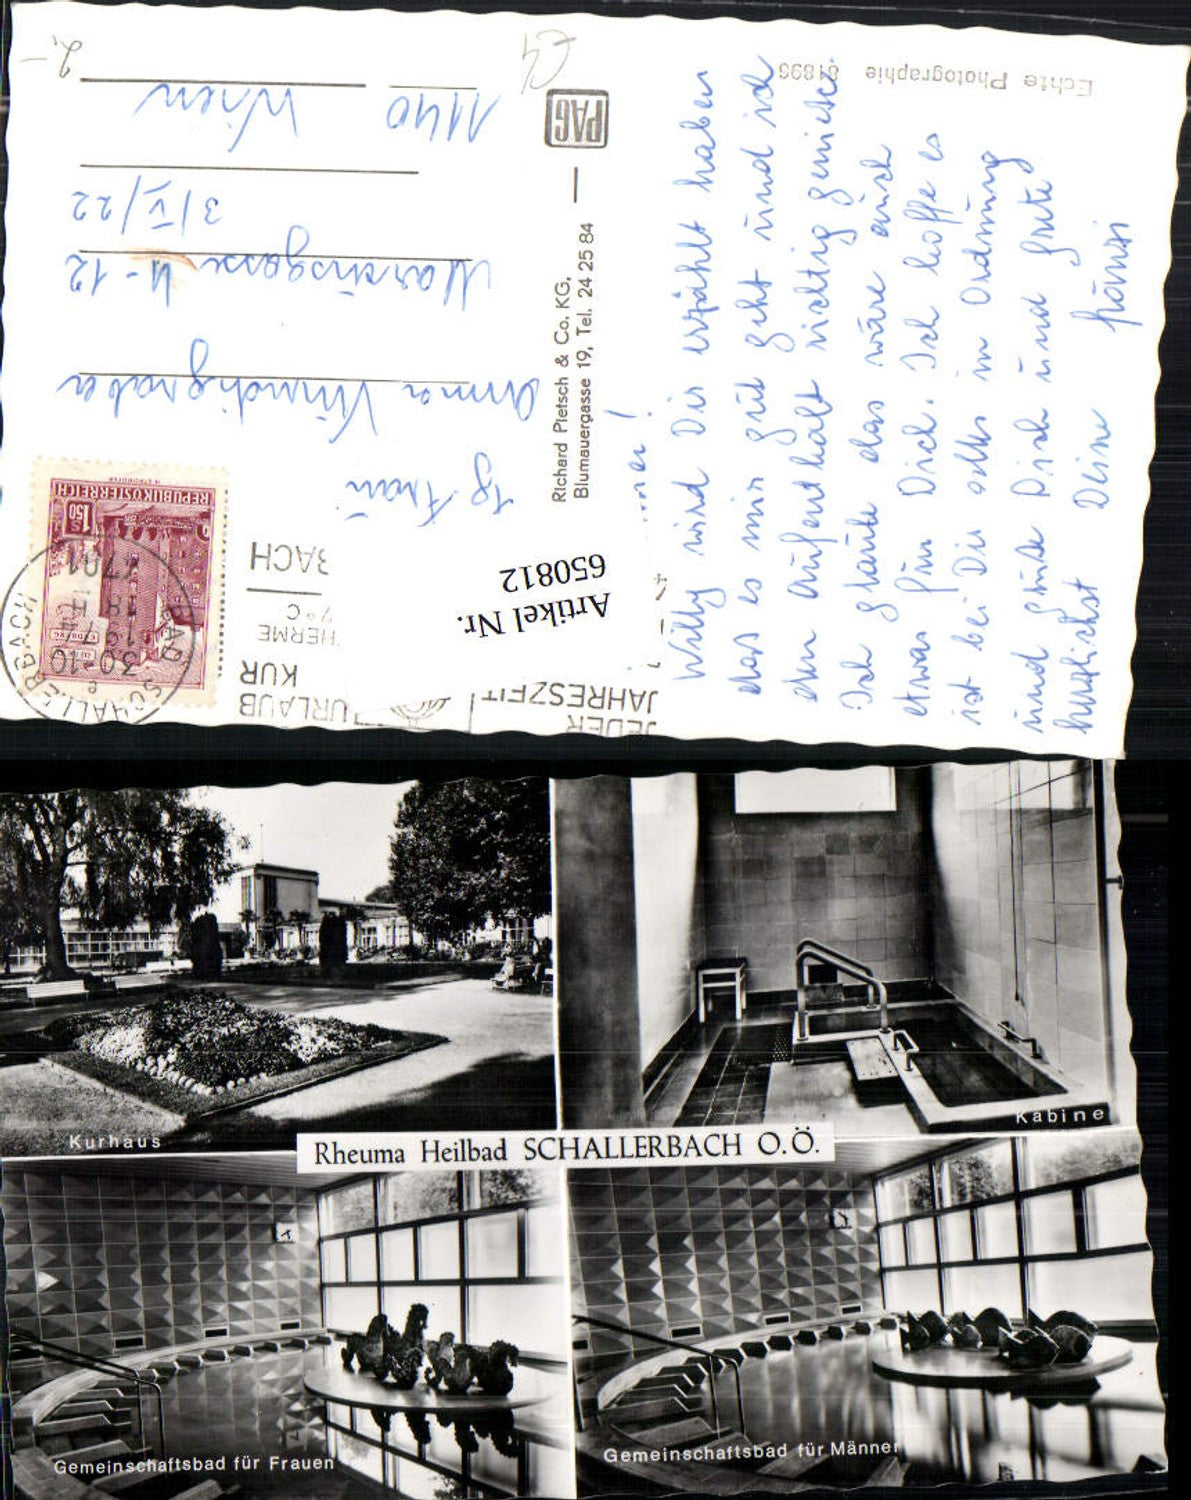 Echte Photographie 81896
Willy wird Dir erzählt haben
das es mir gut geht und ich
den Aufenthalt richtig genieße.
Ich glaube das wäre auch
etwas für Dich. Ich hoffe es
ist bei Dir alles in Ordnung
und Grüße Dich und
herzlichst Deine
Richard Pietsch & Co. KG,
Blumauergasse 19, Tel. 24 25 84
PAG
Artikel Nr.
650812
JEDER
JAHRESZEIT
URLAUB
KUR
THERME
7°C
BACH
REPUBLIK ÖSTERREICH
S 1.50
BAD SCHALLERBACH
4701
Anna Windigraber
11-12
3/V/22
1140 Wien
2,-
Kurhaus
Kabine
Rheuma Heilbad SCHALLERBACH O.Ö.
Gemeinschaftsbad für Frauen
Gemeinschaftsbad für Männer